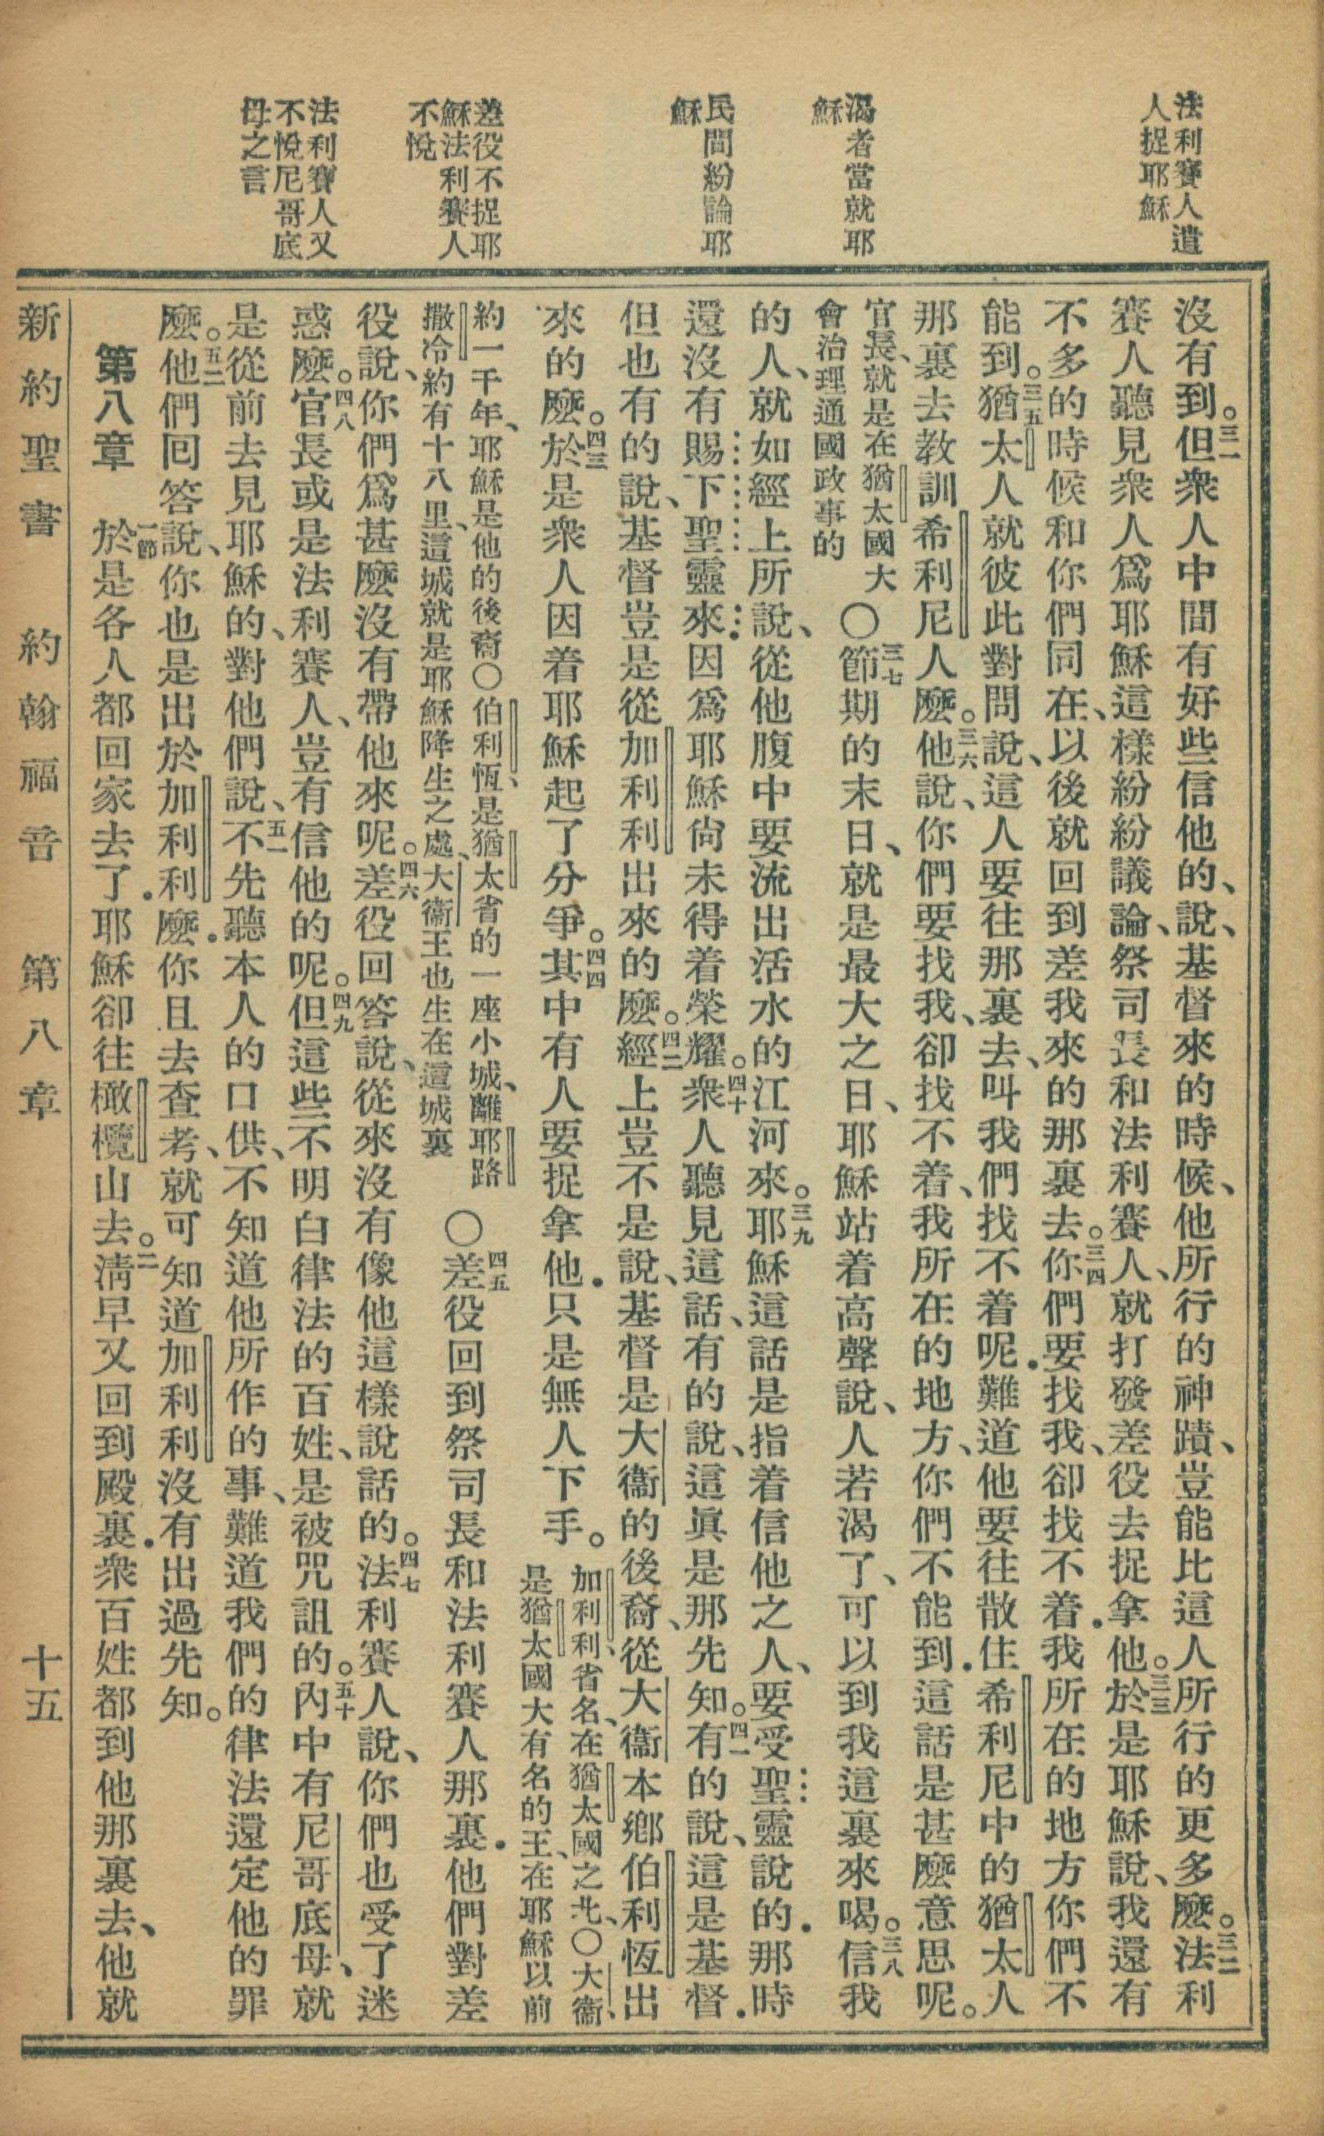 法利賽人遣
人捉耶穌
渴者當就耶
穌
民間紛論耶
穌
差役不捉耶
穌法利賽人
不悅
法利賽人又
不悅尼哥底
母之言
沒有到。三一但衆人中間有好些信他的、說、基督來的時候、他所行的神蹟、豈能比這人所行的更多麼。三二法利
賽人聽見衆人爲耶穌這樣紛紛議論、祭司長和法利賽人、就打發差役去捉拿他。三三於是耶穌說、我還有
不多的時候和你們同在、以後就回到差我來的那裏去。三四你們要找我、卻找不着．我所在的地方你們不
能到。三五猶太人就彼此對問說、這人要往那裏去、叫我們找不着呢．難道他要往散住希利尼中的猶太人
那裏去教訓希利尼人麼。三六他說、你們要找我、卻找不着、我所在的地方、你們不能到．這話是甚麼意思呢。
官長、就是在猶太國大
會治理通國政事的
〇三七節期的末日、就是最大之日、耶穌站着高聲說、人若渴了、可以到我這裏來喝。三八信我
的人、就如經上所說、從他腹中要流出活水的江河來。三九耶穌這話是指着信他之人、要受聖靈說的．那時
還沒有賜下聖靈來．因爲耶穌尙未得着榮耀。四十衆人聽見這話、有的說、這眞是那先知。四一有的說、這是基督．
但也有的說、基督豈是從加利利出來的麼。四二經上豈不是說、基督是大衞的後裔、從大衞本鄉伯利恆出
來的麼。四三於是衆人因着耶穌起了分爭。四四其中有人要捉拿他．只是無人下手。
加利利、省名、在猶太國之北、〇大衞、
是猶太國大有名的王、在耶穌以前
約一千年、耶穌是他的後裔〇伯利恆、是猶太省的一座小城、離耶路
撒冷約有十八里、這城就是耶穌降生之處、大衞王也生在這城裏
〇四五差役回到祭司長和法利賽人那裏．他們對差
役說、你們爲甚麼沒有帶他來呢。四六差役回答說、從來沒有像他這樣說話的。四七法利賽人說、你們也受了迷
惑麼。四八官長或是法利賽人、豈有信他的呢。四九但這些不明白律法的百姓、是被咒詛的。五十內中有尼哥底母、就
是從前去見耶穌的、對他們說、五一不先聽本人的口供、不知道他所作的事、難道我們的律法還定他的罪
麼。五二他們回答說、你也是出於加利利麼．你且去查考、就可知道加利利沒有出過先知。
第八章　一節於是各人都回家去了．耶穌卻往橄欖山去。二淸早又回到殿裏．衆百姓都到他那裏去、他就
新約聖書　約翰福音　第八章　十五